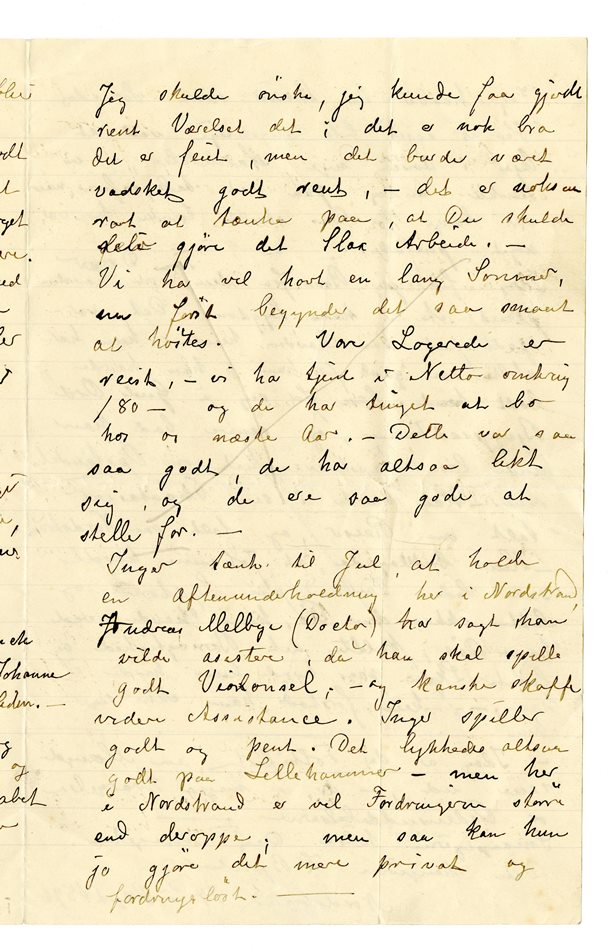 Jeg skulde ønske, jeg kunde faa gjort
rent Værelset det; det er nok bra
det er feiet, men det burde været
vadsket godt rent, — det er noksaa
rart at tænke paa, at Du skulde
selv gjøre det Slax Arbeide. —
Vi ha vel havt en lang Sommer,
nu først begynder det saa smaat
at høstes. Vore Logerede er
reist, — vi ha tjent i Netto omkring
180 — og de har tinget at bo
hos os næste Aar. — Dette var saa
saa godt, de har altsaa likt
sig, og de ere saa gode at
stelle for. —
Inger tænk. til Jul, at holde
en Aftenunderholdning her i Nordstrand,
Andreas Melbye (Doctor) har sagt han
vilde asistere, da han skal spille
godt Violonsel. — og kanske skaffe
videre Assistance. Inger spiller
godt og pent. Det lykkedes altsaa
godt paa Lillehammer — men her
i Nordstrand er vel Fordringerne større
end deroppe; men saa kan hun
jo gjøre det mere privat og
fordringsløst. —